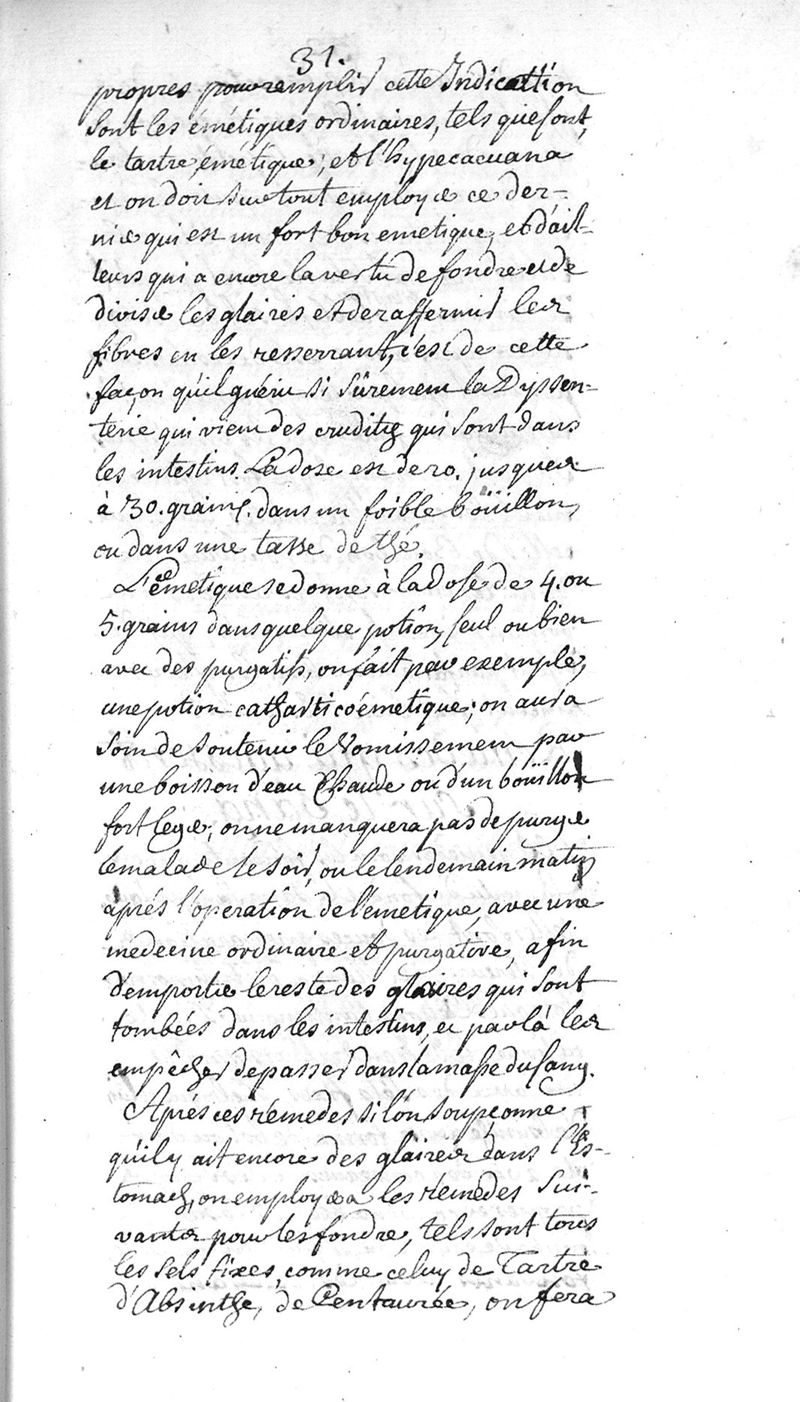 31.
propres pour remplir cette Indication
sont les émétiques ordinaires, tels que sont,
le tartre émétique, et l'hypecacuana
et on doit surtout employer ce der-
nier qui est un fort bon emetique, et d'ail-
leurs qui a encore la vertu de fondre et de
diviser les glaires et de raffermir les
fibres en les resserrant, c'est de cette
façon qu'il guérit si sûrement la Dyssen-
terie qui vient des crudités qui sont dans
les intestins. La dose est de 20. jusques
à 30. grains. dans un foible boüillon,
ou dans une tasse de thé.
L'émetique se donne à la dose de 4. ou
5. grains dans quelque potion, seul ou bien
avec des purgatifs, on fait par exemple,
une potion cathartico émetique; on aura
soin de soutenir le Vomissement par
une boisson d'eau Chaude ou d'un boüillon
fort leger, on ne manquera pas de purger
le malade le soir, ou le lendemain matin
après l'operation de l'emetique, avec une
médecine ordinaire et purgative, afin
d'emporter le reste des glaires qui sont
tombées dans les intestins, et par là les
empêcher de passer dans la masse du sang.
Après ces rémedes si l'ón soupçonne
qu'il y ait encore des glaires dans l'Es-
tomach, on employera les remedes sui-
vants pour les fondre, tels sont tous
les sels fixes, comme celuy de Tartre
d'Absinthe, de Centaurée, on fera